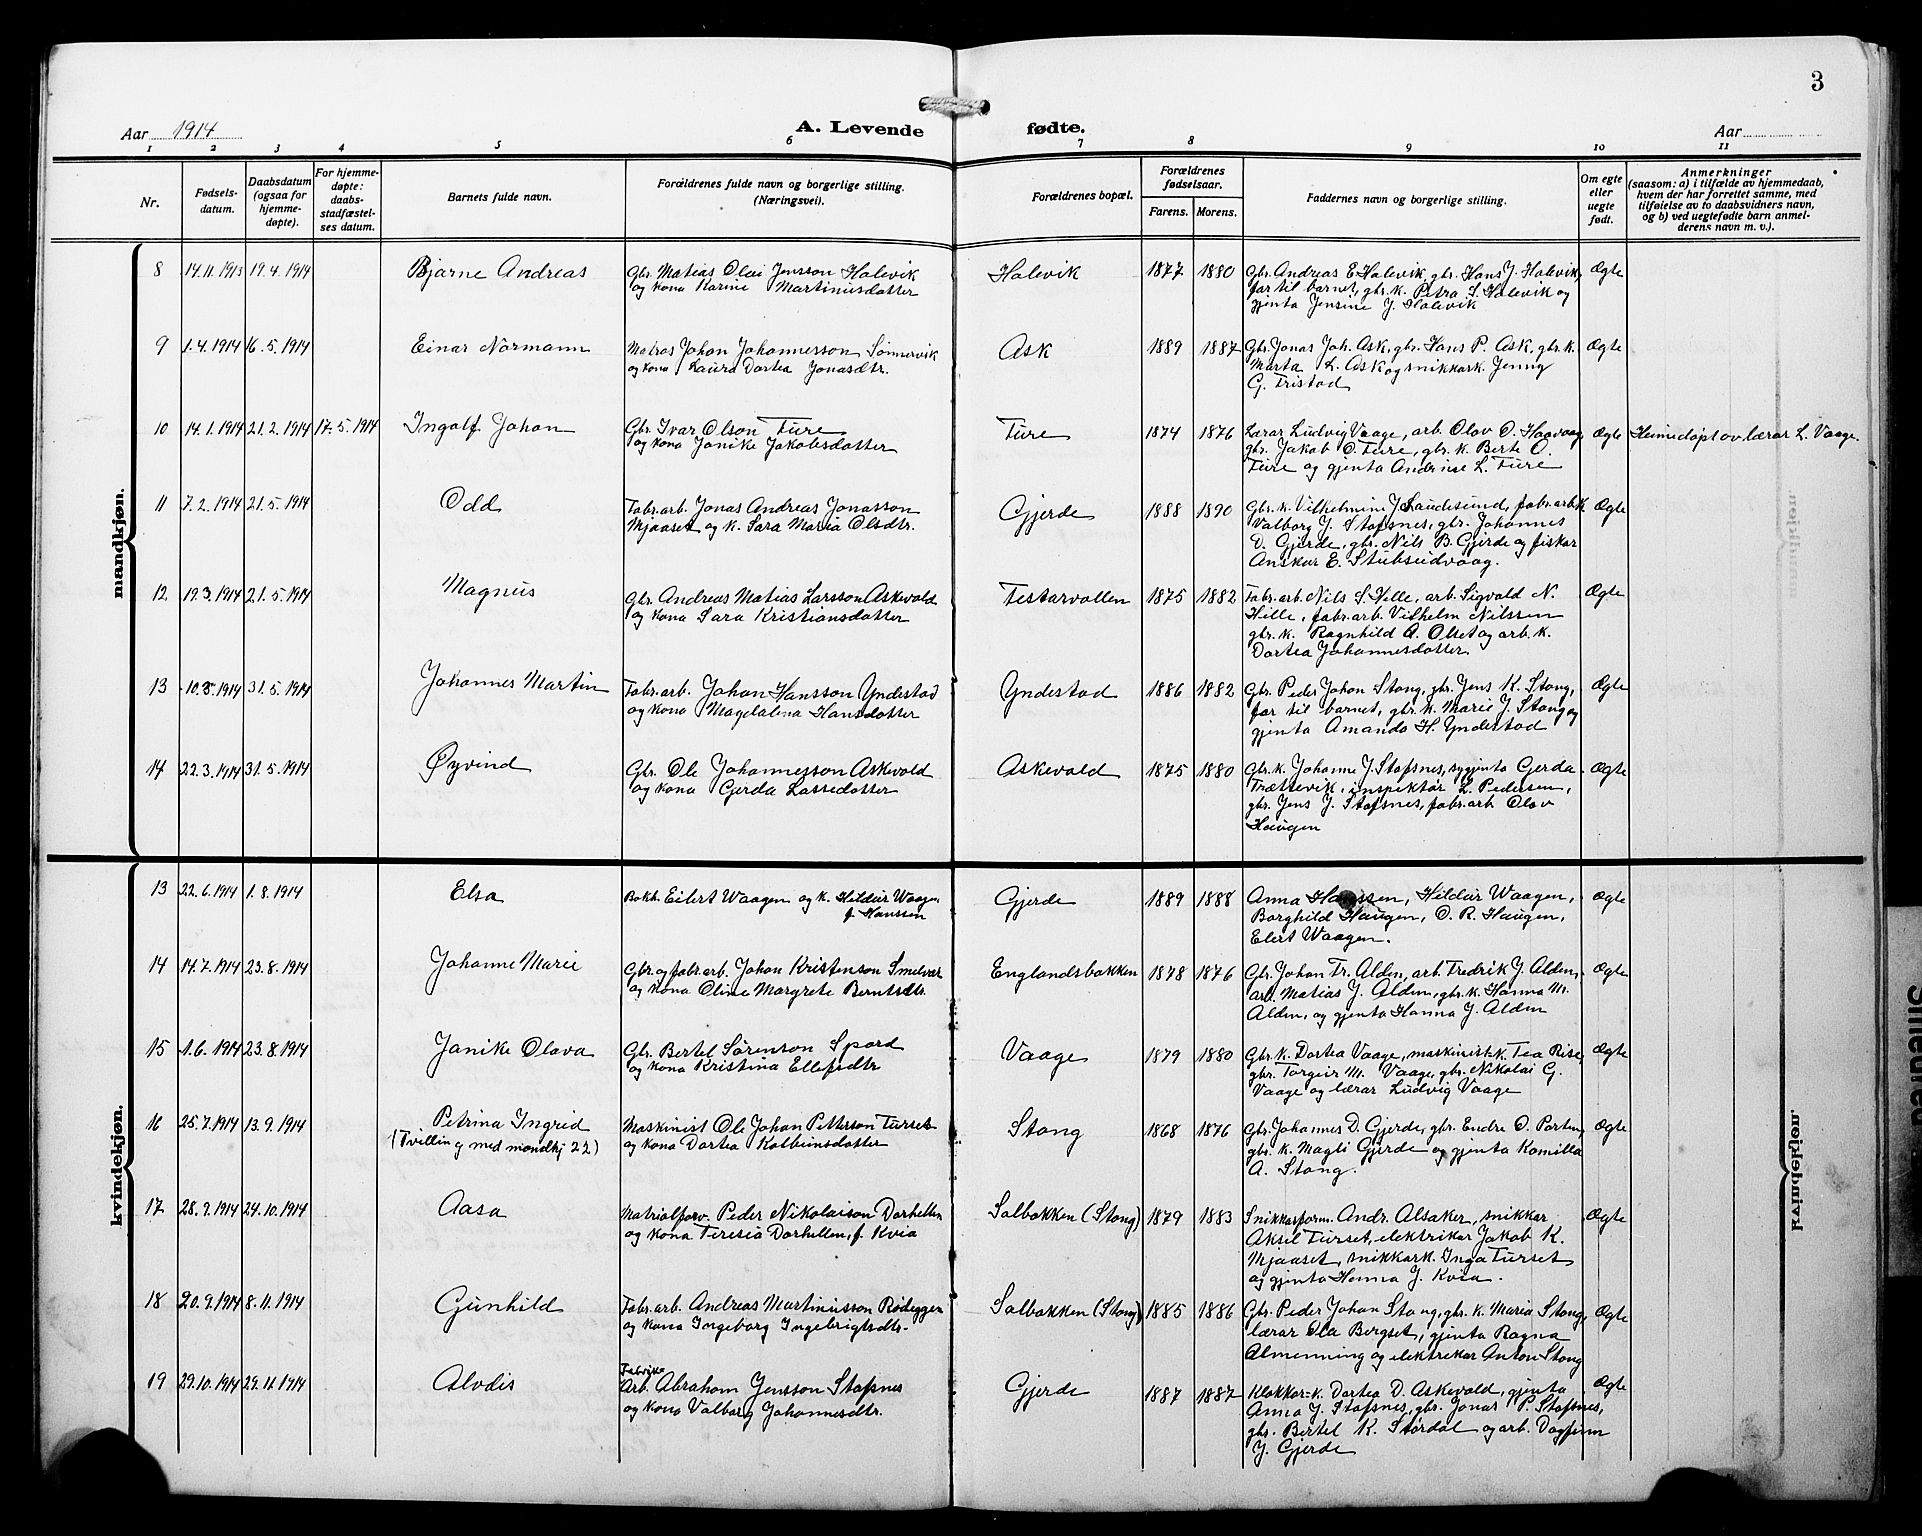 3
Aar 1914
A. Levende fødte.
Aar
1 2 3 4 5 6 7 8 9 10 11
Nr.
Fødsels-
datum.
Daabsdatum
(ogsaa for
hjemme-
døpte).
For hjemme-
døpte:
daabs-
stadfæstel-
ses datum.
Barnets fulde navn.
Forældrenes fulde navn og borgerlige stilling.
(Næringsvei).
Forældrenes bopæl.
Forældrenes
fødselsaar.
Farens. Morens.
Faddernes navn og borgerlige stilling.
Om egte
eller
uegte
født.
Anmerkninger
(saasom: a) i tilfælde av hjemmedaab,
hvem der har forrettet samme, med
tilføielse av to daabsvidners navn,
og b) ved uegtefødte barn anmel-
derens navn m. v.).
mandkjøn.
8 14.11.1913 19.4.1914 Bjarne Andreas
Gbr. Matias Olai Jensson Halevik
og kona Karine Martinusdotter
Halevik 1877 1880
Gbr. Andreas E. Halevik, gbr. Hans J. Halevik,
far til barnet, gbr. k. Petra S. Halevik og
gjenta Jensine J. Halevik
Ægte
9 1.4.1914 16.5.1914 Einar Normann
Matros Johan Johannesson Sønnervik
og kona Laura Dortea Jonasdtr.
Ask 1889 1887
Gbr. Jonas Joh. Ask, gbr. Hans P. Ask, gbr. k.
Marta L. Ask og snikkark. Jenny
G. Tristad
Ægte
10 14.1.1914 21.2.1914 17.5.1914 Ingolf Johan
Gbr. Ivar Olson Fure
og kona Janike Jakobsdotter
Fure 1874 1876
Lærar Ludvig Vaage, arb. Olav O. Haavaag
gbr. Jakob O. Fure, gbr. k. Berte O.
Fure og gjenta Andrine L. Fure
Ægte Heimedøpt av lærar L. Vaage.
11 7.2.1914 21.5.1914 Odd
Fabr.arb. Jonas Andreas Jonasson
Mjaaset og k. Sara Maria Olsdtr.
Gjerde 1888 1890
Gbr. k. Vilhelmine J. Sandesund, fabr.arb.k
Valborg J. Stafsnes, gbr. Johannes
D. Gjerde, gbr. Nils B. Gjerde og fiskar
Anskar E. Stubseidvaag.
Ægte
12 19.3.1914 21.5.1914 Magnus
Gbr. Andreas Matias Larsson Askevold
og kona Sara Kristiansdotter
Festarvollen 1875 1882
Fabr.arb. Nils S. Hille, arb. Sigvald N.
Hille, fabr.arb. Vilhelm Nilssen
gbr. k. Ragnhild A. Olset og arb. k.
Dortea Johannesdotter
Ægte
13 10.3.1914 31.5.1914 Johannes Martin
Fabr.arb. Johan Hansson Yndestad
og kona Magdalena Hansdotter
Yndestad 1886 1882
Gbr. Peder Johan Stang, gbr. Jens K. Stang,
far til barnet, gbr. k. Marie J. Stang og
gjenta Amanda H. Yndestad
Ægte
14 22.3.1914 31.5.1914 Øyvind
Gbr. Ole Johannesson Askevold
og kona Gjerda Lassedotter
Askevold 1875 1880
Gbr. k. Johanne J. Stafsnes, sygjenta Gerda
Trættevik, inspektør L. Pedersen,
gbr. Jens J. Stafsnes, fabr.arb. Olav
Haugen
Ægte
kvindekjøn.
13 22.6.1914 1.8.1914 Elsa
Bokh. Eilert Waagen og k. Hildur Waagen
f. Hanssen
Gjerde 1889 1888
Anna Hanssen, Hildur Waagen,
Borghild Haugen, O. R. Haugen,
Elert Waagen.
Ægte
14 14.7.1914 23.8.1914 Johanne Marie
Gbr. og fabr.arb. Johan Kristenson Smelvær
og kona Oline Margrete Berntsdtr.
Englandsbakken 1878 1876
Gbr. Johan Fr. Alden, arb. Fredrik J. Alden,
arb. Matias J. Alden, gbr. k. Hanna M.
Alden, og gjenta Hanna J. Alden
Ægte
15 1.6.1914 23.8.1914 Janike Olava
Gbr. Bertel Sørenson Spord
og kona Kristina Ellefsdtr
Vaage 1879 1880
Gbr. k. Dortea Vaage, maskinist-k. Tea Rise,
gbr. Torgeir M. Vaage, gbr. Nikolai G.
Vaage og lærar Ludvig Vaage
Ægte
16 25.7.1914 13.9.1914 Petrina Ingrid
(Tvilling med mandkj 22)
Maskinist Ole Johan Petterson Furset
og kona Dortea Kolbeinsdotter
Stang 1868 1876
Gbr. Johannes D. Gjerde, gbr. Endre O. Porten,
gbr. k. Magli Gjerde og gjenta Kamilla
A. Stang.
Ægte
17 28.9.1914 24.10.1914 Aasa
Matrialforv. Peder Nikolaison Dorhellen
og kona Teresia Dorhellen, f. Kvia
Solbakken (Stang) 1879 1883
Snikkarform. Andr. Alsaker, snikkar
Aksel Furset, elektrikar Jakob K.
Mjaaset, snikkark. Inga Furset
og gjenta Henna J. Kvia.
Ægte
18 20.9.1914 8.11.1914 Gunhild
Fabr.arb. Andreas Martinusson Rødeggen
og kona Ingeborg Ingebrigtsdtr.
Solbakken (Stang) 1885 1886
Gbr. Peder Johan Stang, gbr. k. Maria Stang,
lærar Ola Bergset, gjenta Ragna
Almenning og elektrikar Anton Stang
Ægte
19 29.10.1914 29.11.1914 Alvdis
Fabrik-
Arb. Abraham Jensson Stafsnes
og kona Valborg Johannesdtr.
Gjerde 1887 1887
Klokkar-k. Dortea D. Askevold, gjenta
Anna J. Stafsnes, gbr. Jonas P. Stafsnes,
gbr. Bertel K. Størdal og arb. Dagfinn
J. Gjerde
Ægte
Kvindekjøn.